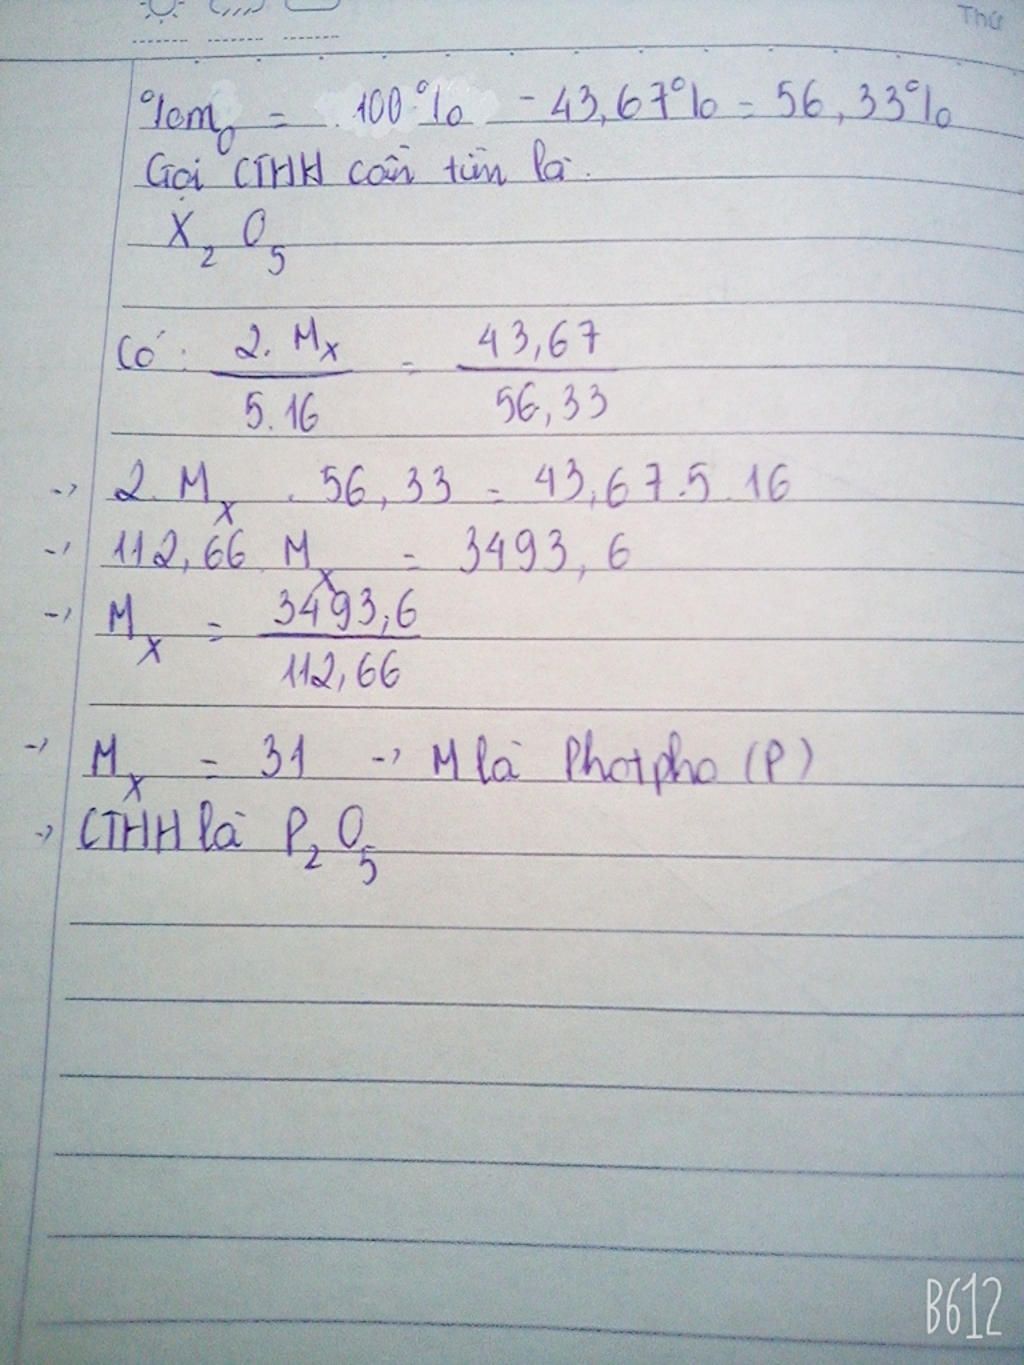 Thứ
%m₀ = 100% - 43,67% = 56,33%
Gọi CTHH cần tìm là
X₂O₅
Có: 2.Mₓ / 5.16 = 43,67 / 56,33
-> 2.Mₓ . 56,33 = 43,67.5.16
-> 112,66 Mₓ = 3493,6
-> Mₓ = 3493,6 / 112,66
-> Mₓ = 31 -> M là Photpho (P)
-> CTHH là P₂O₅
B612